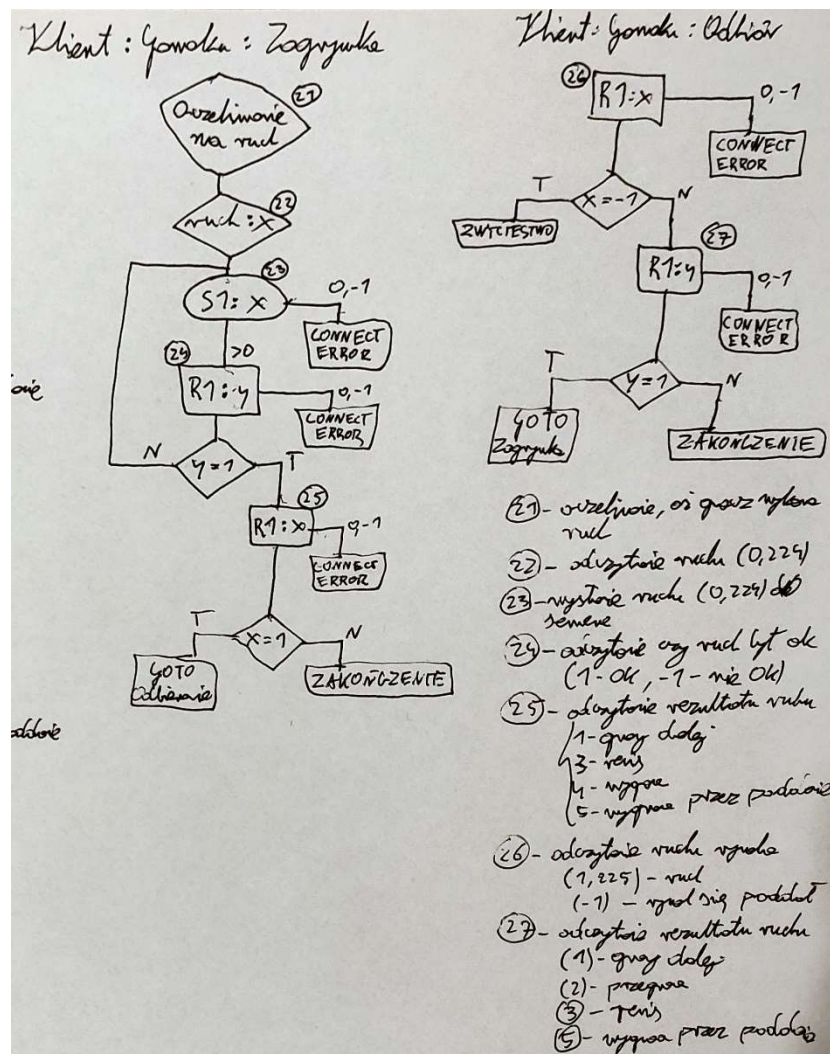 Klient : Gomoku : Zagrywka
21
Oczekiwanie
na ruch
22
ruch : x
23
S1: x
0,-1
CONNECT
ERROR
>0
24
R1: y
0,-1
CONNECT
ERROR
N
y=1
T
25
R1: x
0,-1
CONNECT
ERROR
T
x=1
N
GOTO
Odbieranie
ZAKOŃCZENIE
Klient: Gomoku : Odbiór
26
R1: x
0,-1
CONNECT
ERROR
T
x=-1
N
ZWYCIĘSTWO
27
R1: y
0,-1
CONNECT
ERROR
T
y=1
N
GOTO
Zagrywka
ZAKOŃCZENIE
21 - oczekiwanie, aż gracz wykona
ruch
22 - odczytanie ruchu (0,224)
23 - wysłanie ruchu (0,224) do
serwera
24 - odczytanie czy ruch był ok
(1 - OK, -1 - nie OK)
25 - odczytanie rezultatu ruchu
1 - gramy dalej
3 - remis
4 - wygrana
5 - wygrana przez poddanie
26 - odczytanie ruchu wroga
(1,225) - ruch
(-1) - wróg się poddał
27 - odczytanie rezultatu ruchu
(1) - gramy dalej
(2) - przegrana
(3) - remis
(5) - wygrana przez poddanie